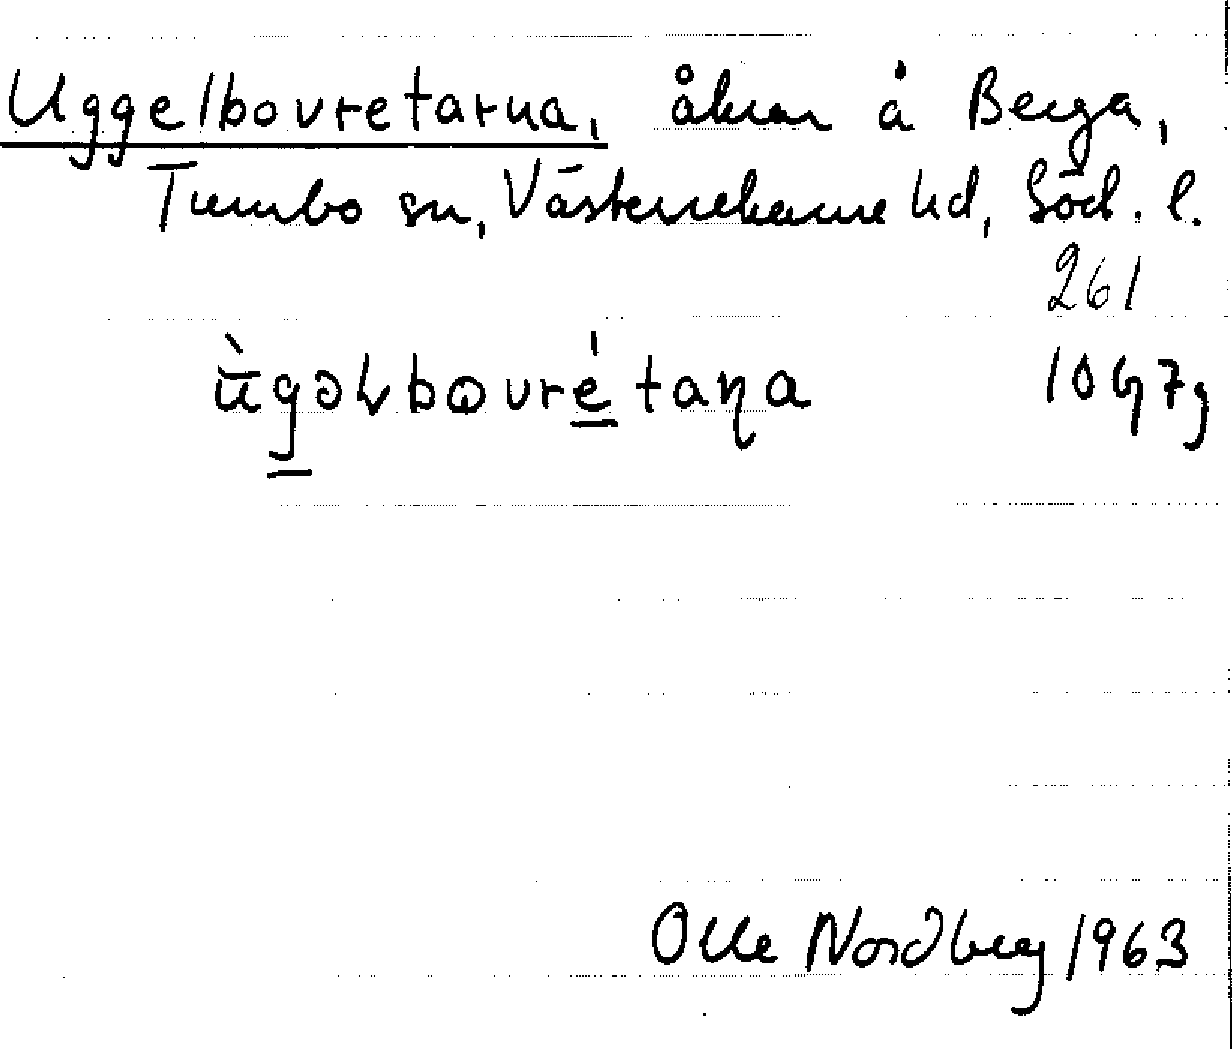 Uggelbovretarna, åkrar å Berga,
Tumbo sn, Västerrekarne hd, Söd. l.
261
ù̄gəɫbovrétaɳa 10G7g
Olle Nordberg 1963